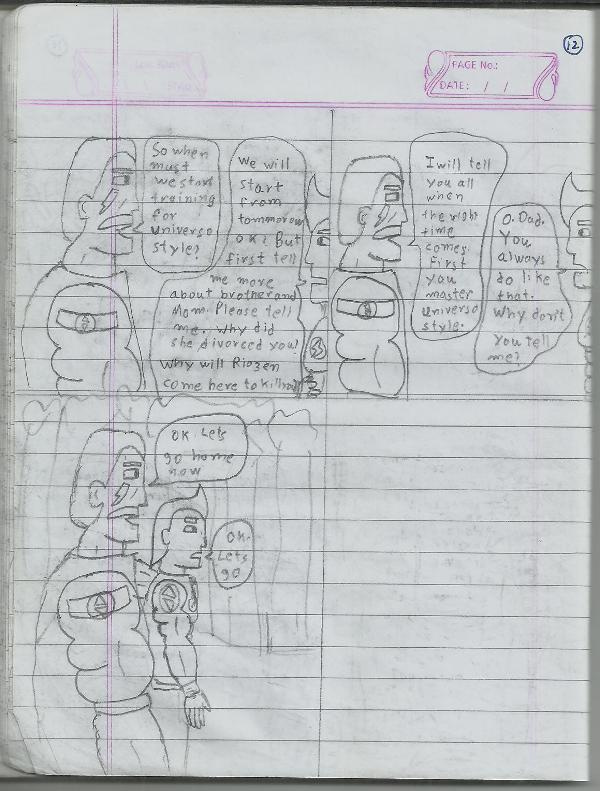 12
PAGE No.:
DATE: / /
So when
must
we start
training
for
universo
style?
We will
start
from
tommorow
OK? But
first tell
me more
about brother and
Mom. Please tell
me. Why did
she divorsed you?
Why will Riozen
come here to kill
I will tell
you all
when
the right
time
comes.
First
you
master
universo
style.
O. Dad.
You
always
do like
that.
Why don't
you tell
me?
OK. Lets
go home
now
OK.
Lets
go